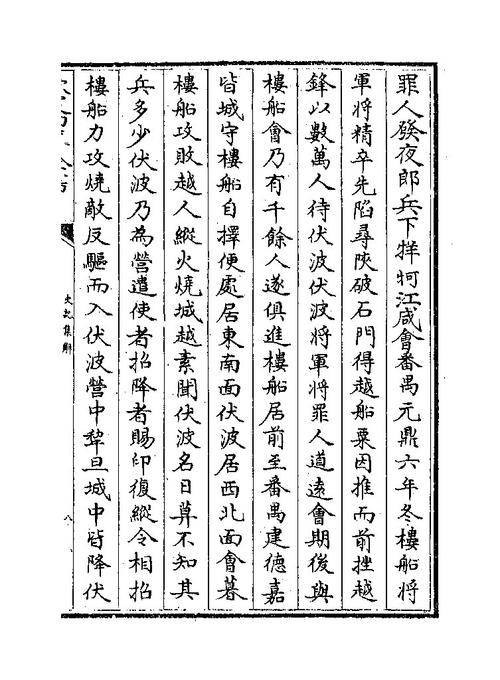 罪人發夜郎兵下牂牁江咸會番禺元鼎六年冬樓船將
軍將精卒先陷尋陝破石門得越船粟因推而前挫越
鋒以數萬人待伏波伏波將軍將罪人道遠會期後與
樓船會乃有千餘人遂俱進樓船居前至番禺建德嘉
皆城守樓船自擇便處居東南面伏波居西北面會暮
樓船攻敗越人縱火燒城越素聞伏波名日莫不知其
兵多少伏波乃為營遣使者招降者賜印復縱令相招
樓船力攻燒敵反驅而入伏波營中犂旦城中皆降伏
史記集解
八